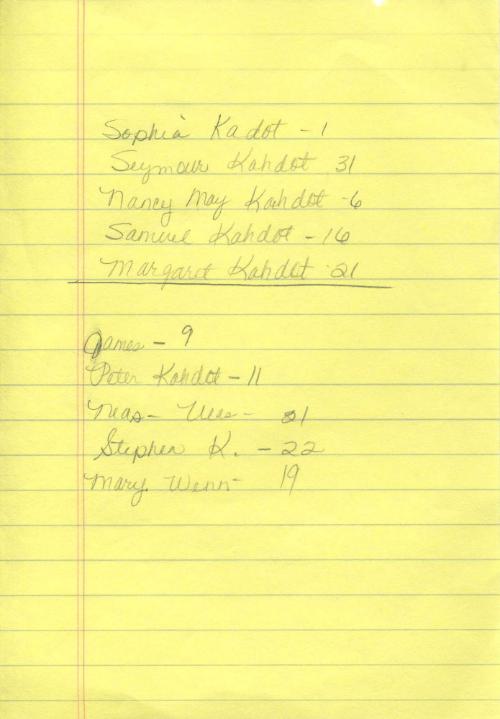 Sophia Kadot - 1
Seymour Kahdot 31
Nancy May Kahdot - 6
Samuel Kahdot - 16
Margaret Kahdot - 21
James - 9
Peter Kahdot - 11
Neas - Wes - 21
Stephen K. - 22
Mary Wenn - 19